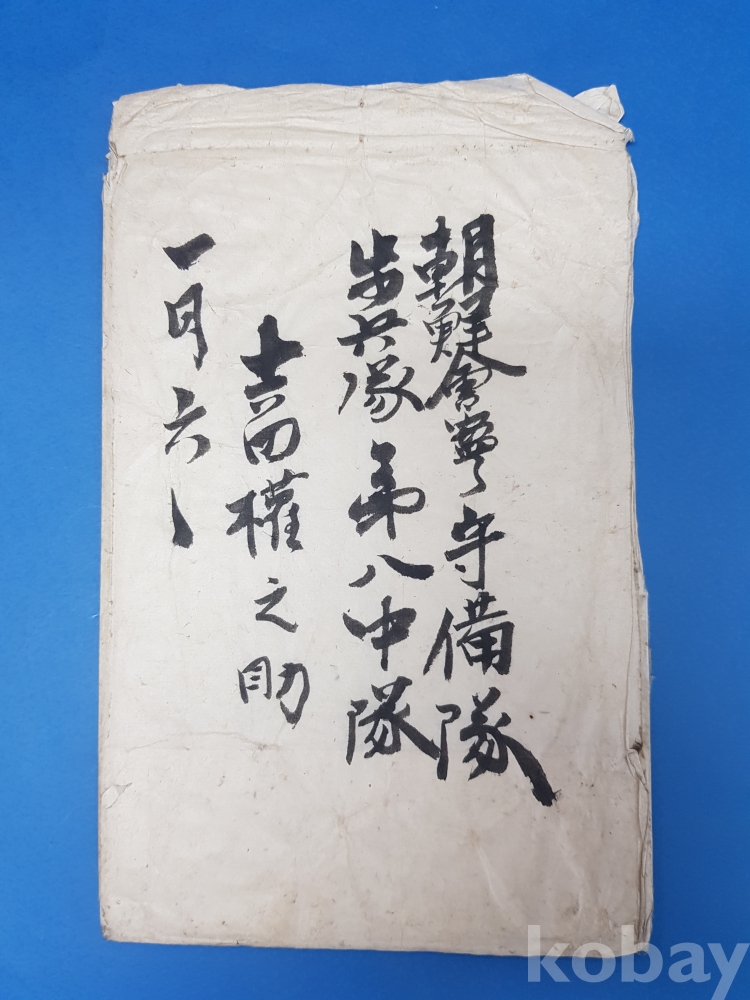 朝鮮會寧守備隊
歩兵隊第八中隊
吉留權之助
一月六日
kobay